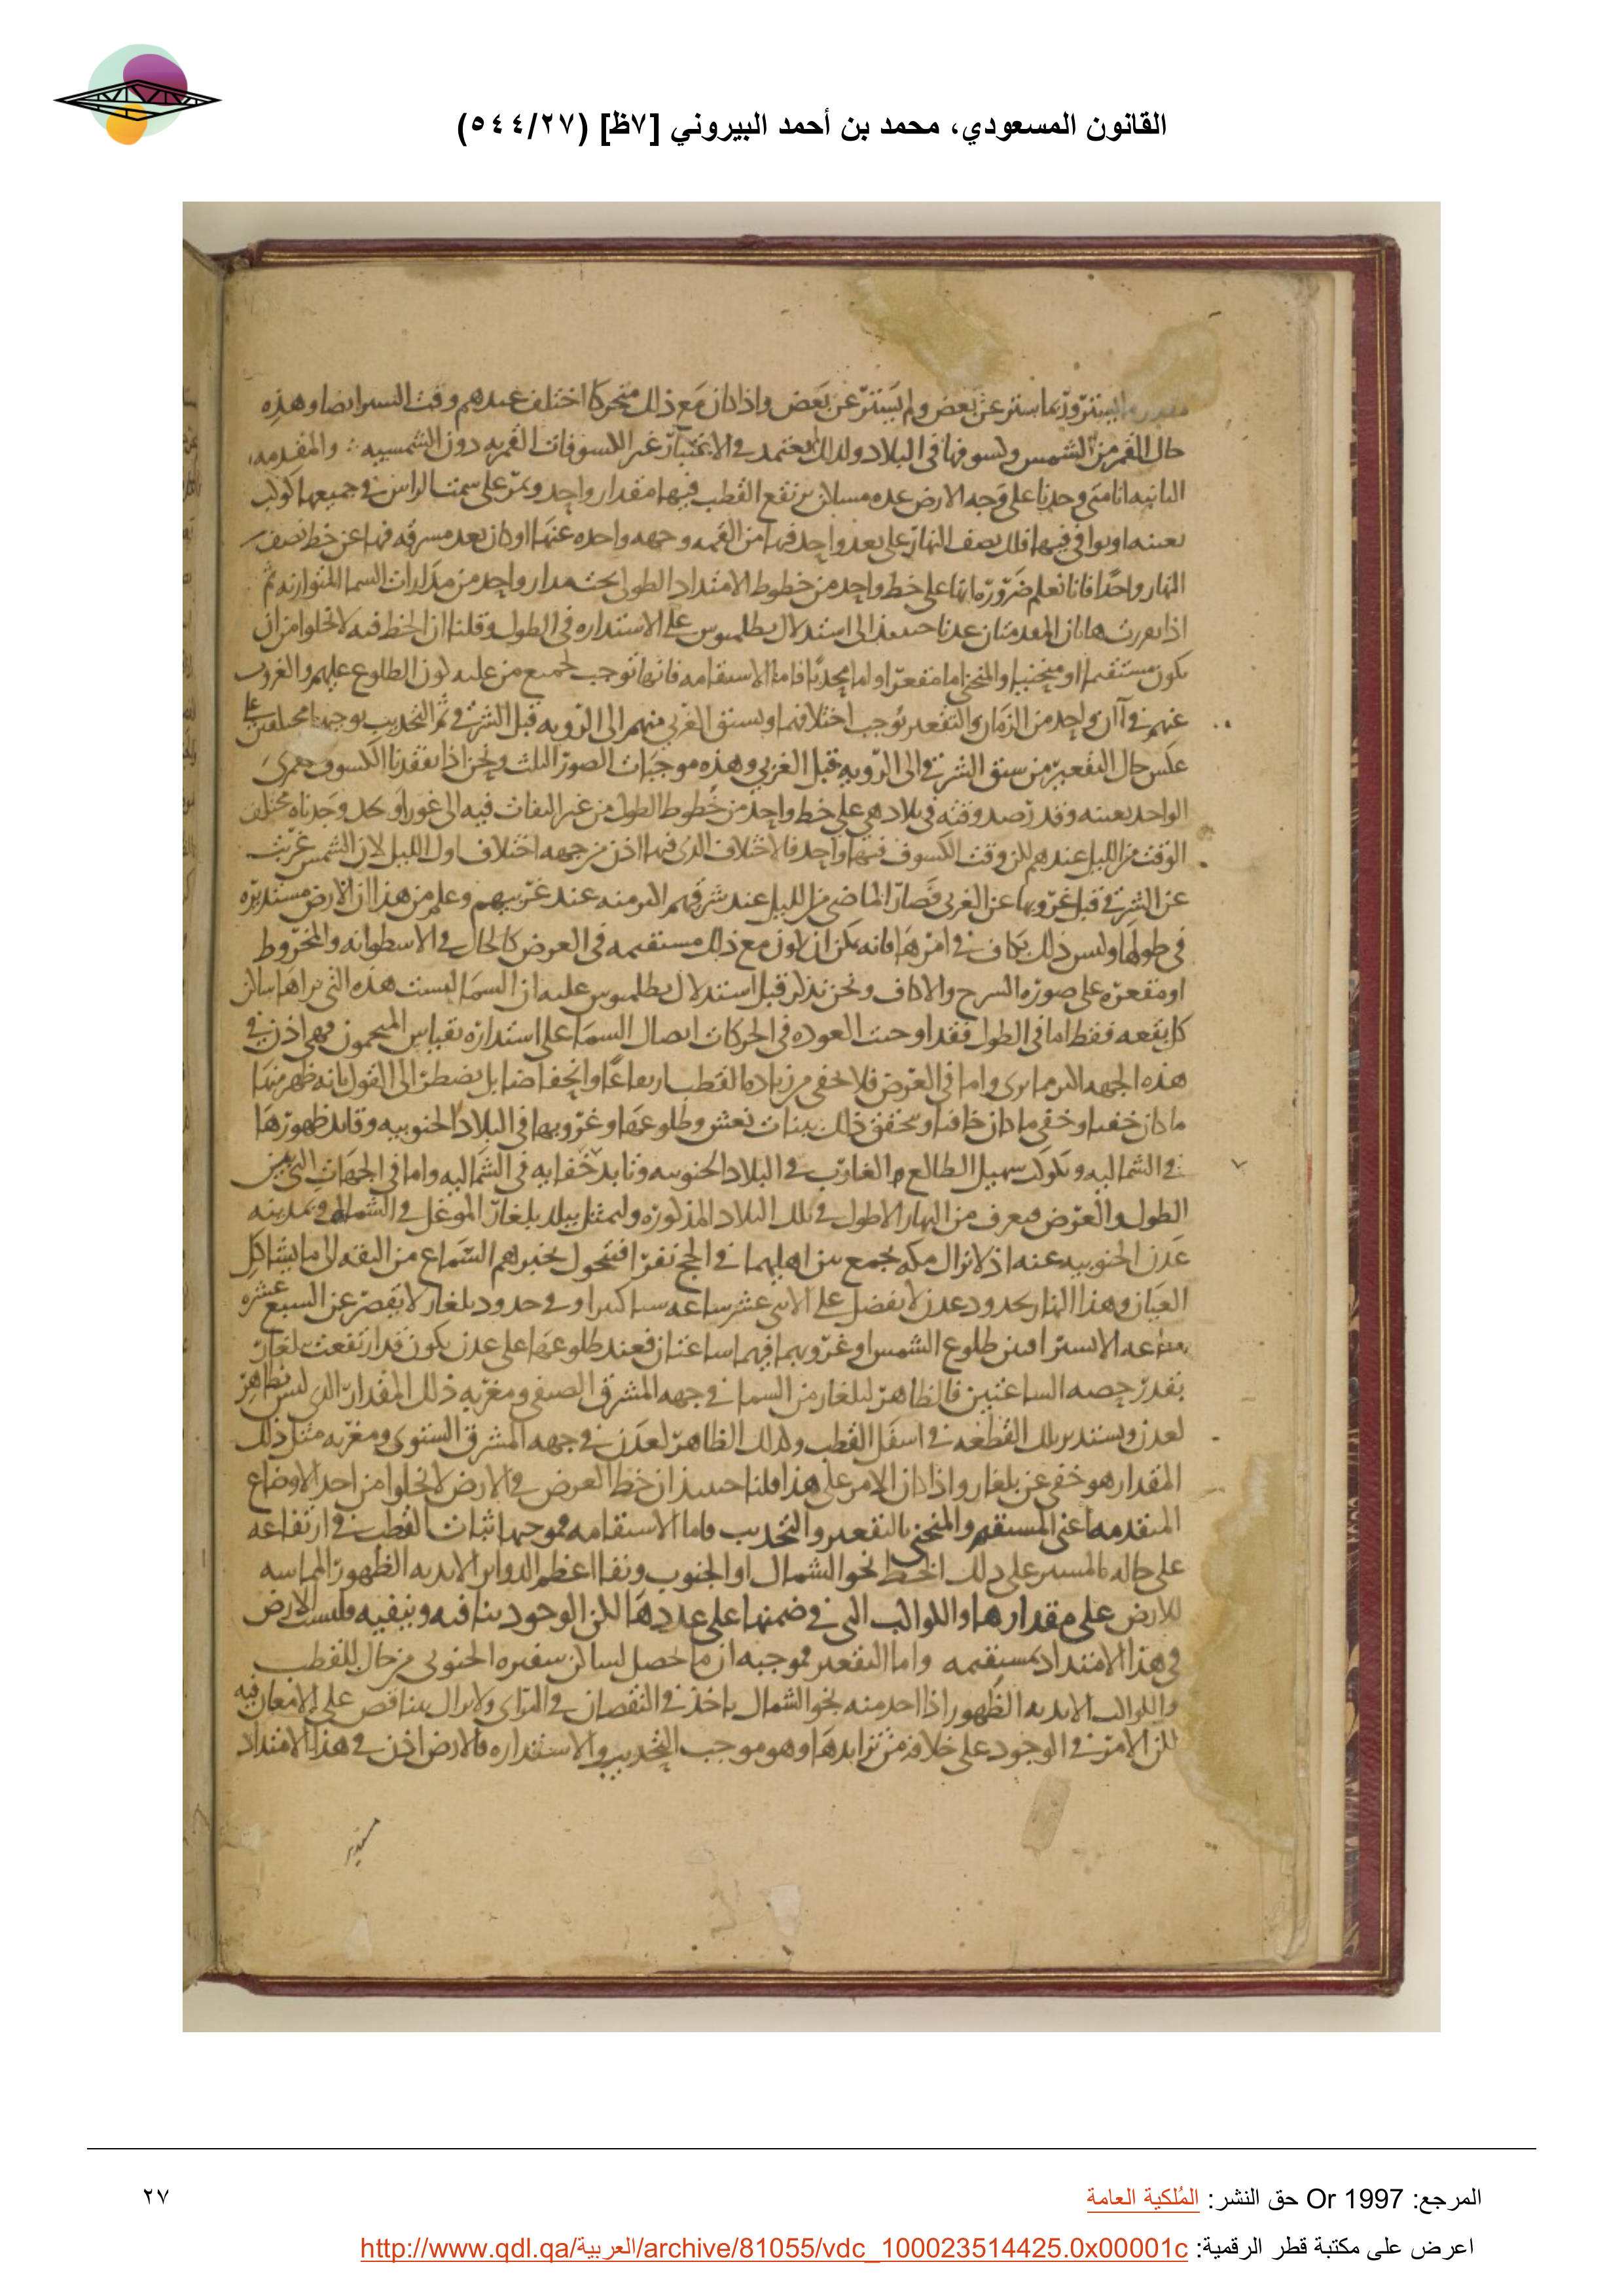 القانون المسعودي، محمد بن أحمد البيروني [٧ظ] (٥٤٤/٢٧)
يستتر وربما ستر عن بعض ولم يستتر عن بعض واذا كان مع ذلك متحركا اختلف عندهم وقت الستر ايضا وهذه
حال القمر من الشمس وكسوفها فى البلاد ولذلك يعتمد فى الاعتبار غير الكسوفات القمريه دون الشمسيه والمقدمه
الثانيه انا متى وجدنا على وجه الارض عده مساكن يرتفع القطب فيها مقدار واحد ويمر على سمت الراس فى جميعها كوكب
بعينه او يوافى فيها فلك نصف النهار على بعد واحد فيها من القمه وجهه واحده عنها او كان بعد مشرقه فيها عن خط نصف
النهار واحدا فانا نعلم ضروره انها على خط واحد من خطوط الامتداد الطولى تحت مدار واحد من مدارات السما المتوازيه ثم
اذا تقررت هاتان المقدمتان عدنا حينئذ الى استدلال بطلميوس على الاستداره فى الطول وقلنا ان الخط فيه لا يخلوا من ان
يكون مستقيما او منحنيا والمنحنى اما مقعرا او اما محدبا فاما الاستقامه فانها توجب لجميع من عليه كون الطلوع عليهم والغروب
عنهم فى آن واحد من الزمان والتقعير يوجب اختلافهما ويسبق الغربى منهم الى الرويه قبل الشرقى ثم التحديب يوجبها مختلفين على
عكس حال التقعير من سبق الشرقى الى الرويه قبل الغربى وهذه موجبات الصور الثلث ونحن اذا تفقدنا الكسوف القمرى
الواحد بعينه وقد رصد وقته فى بلاد هى على خط واحد من خطوط الطول من غير التفات فيه الى غور او نجد وجدناه مختلف
الوقت من الليل عندهم لكن وقت الكسوف فيها واحد فالاختلاف الذى فيها اذن من جهه اختلاف اول الليل لان الشمس غربت
عن الشرقى قبل غروبها عن الغربى فصار الماضى من الليل عند شرقيهم اكثر منه عند غربيهم وعلم من هذا ان الارض مستديره
فى طولها وليس ذلك بكاف فى امرها فانه يمكن ان يكون مع ذلك مستقيمه فى العرض كالحال فى الاسطوانه والمخروط
او مقعره على صوره السرج والاكاف ونحن نذكر قبل استدلال بطلميوس عليه ان السما ليست هذه التى يراها ساكن
كل بقعه فقط اما فى الطول فقد اوجبت العوده فى الحركات اتصال السما على استداره بقياس المنجمون فهى اذن فى
هذه الجهه اكثر مما يرى واما فى العرض فلا يخفى من زياده القطب ارتفاعا وانخفاضا بل يضطر الى القول بانه ظهر منها
ما كان خفيا وخفى ما كان خافيا ويحقق ذلك بنات نعش وطلوعها وغروبها فى البلاد الجنوبيه وتابد ظهورها
فى الشماليه وبكوكب سهيل الطالع والغارب فى البلاد الجنوبيه وتابد خفايه فى الشماليه واما فى الجهات التى بين
الطول والعرض فيعرف من النهار الاطول فى تلك البلاد المذكوره وليمثل ببلد بلغار الموغل فى الشمال وبمدينه
عدن الجنوبيه عنه اذ لا تزال مكه تجمع بين اهليهما فى الحج نفرا فيتحول بخبرهم السماع من الثقه الى ما يشاكل
العيان وهذا النهار بحدود عدن لا يفضل على الاثنى عشر ساعه شيا كثيرا وفى حدود بلغار لا يقصر عن السبع عشره
ساعه الا يسيرا فبين طلوع الشمس او غروبها فيهما ساعتان فعند طلوعها على عدن يكون قد ارتفعت ببلغار
بقدر حصه الساعتين فالظاهر لبلغار من السما فى جهه المشرق الصيفى ومغربه ذلك المقدار الذى ليس بظاهر
لعدن ويستدير تلك القطعه فى اسفل القطب وكذلك الظاهر لعدن فى جهه المشرق الشتوى ومغربه مثل ذلك
المقدار هو خفى عن بلغار واذا كان الامر على هذا قلنا حينئذ ان خط العرض فى الارض لا يخلوا من احد الاوضاع
المتقدمه اعنى المستقيم والمنحنى بالتقعير والتحديب فاما الاستقامه فموجبها ثبات القطب فى ارتفاعه
على حاله بالمسير على ذلك الخط نحو الشمال او الجنوب وبقا اعظم الدواير الابديه الظهور المماسه
للارض على مقدارها والكواكب التى فى ضمنها على عددها لكن الوجود ينافيه وينفيه فليست الارض
فى هذا الامتداد بمستقيمه واما التقعير فموجبه ان ما يحصل لساكن شفيره الجنوبى من حال للقطب
والكواكب الابديه الظهور اذا اخذ منه نحو الشمال ياخذ فى النقصان فى المراى ولا يزال يتناقص على الامعان فيه
لكن الامر فى الوجود على خلافه من تزايدها وهو موجب التحديب والاستداره فالارض اذن فى هذا الامتداد
مستدير
المرجع: Or 1997 حق النشر: المُلكية العامة
٢٧
اعرض على مكتبة قطر الرقمية: http://www.qdl.qa/العربية/archive/81055/vdc_100023514425.0x00001c